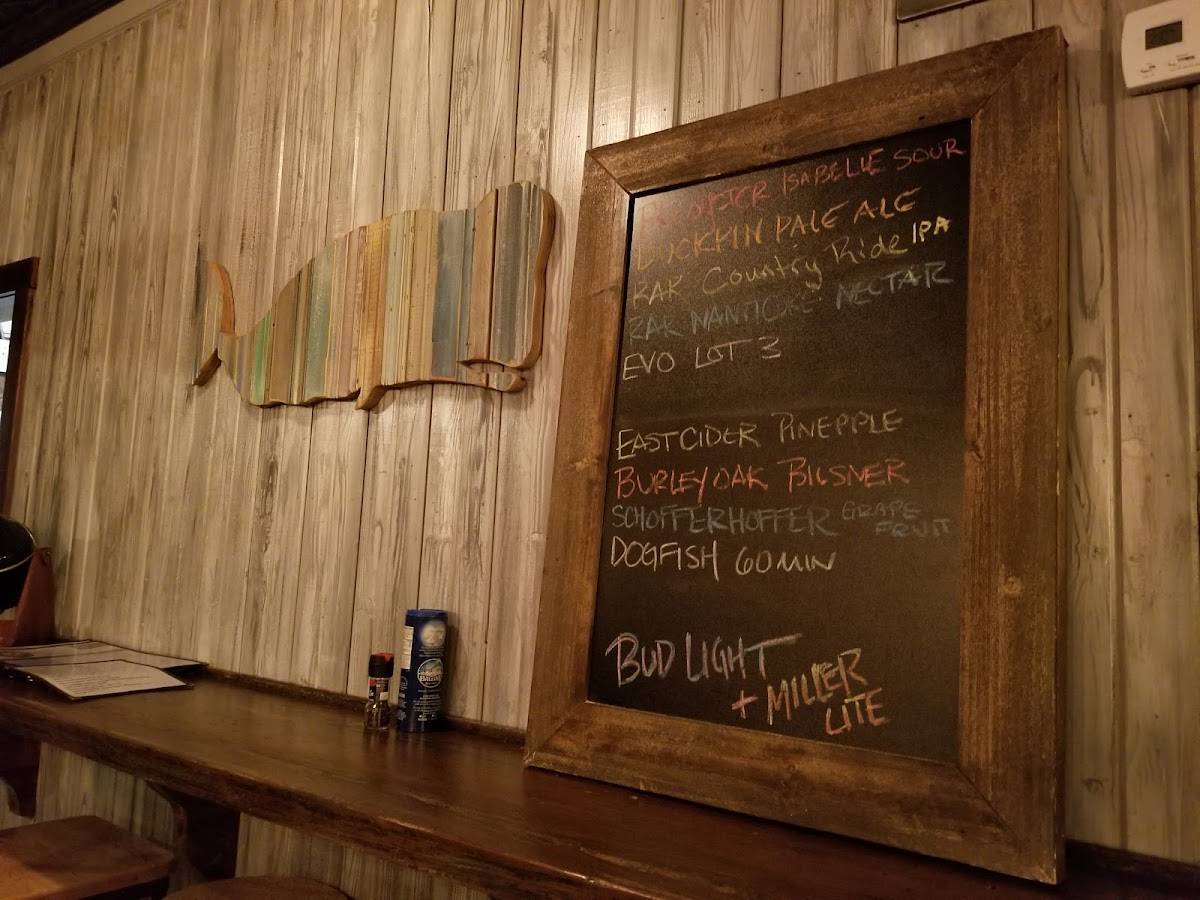 OYSTER ISABELLE SOUR
DUCKPIN PALE ALE
RAR Country Ride IPA
RAR NANTICOKE NECTAR
EVO LOT 3
EASTCIDER PINEPPLE
BURLEY OAK BILSNER
SCHOFFERHOFFER GRAPE
FRUIT
DOGFISH 60 MIN
BUD LIGHT
+ MILLER
LITE